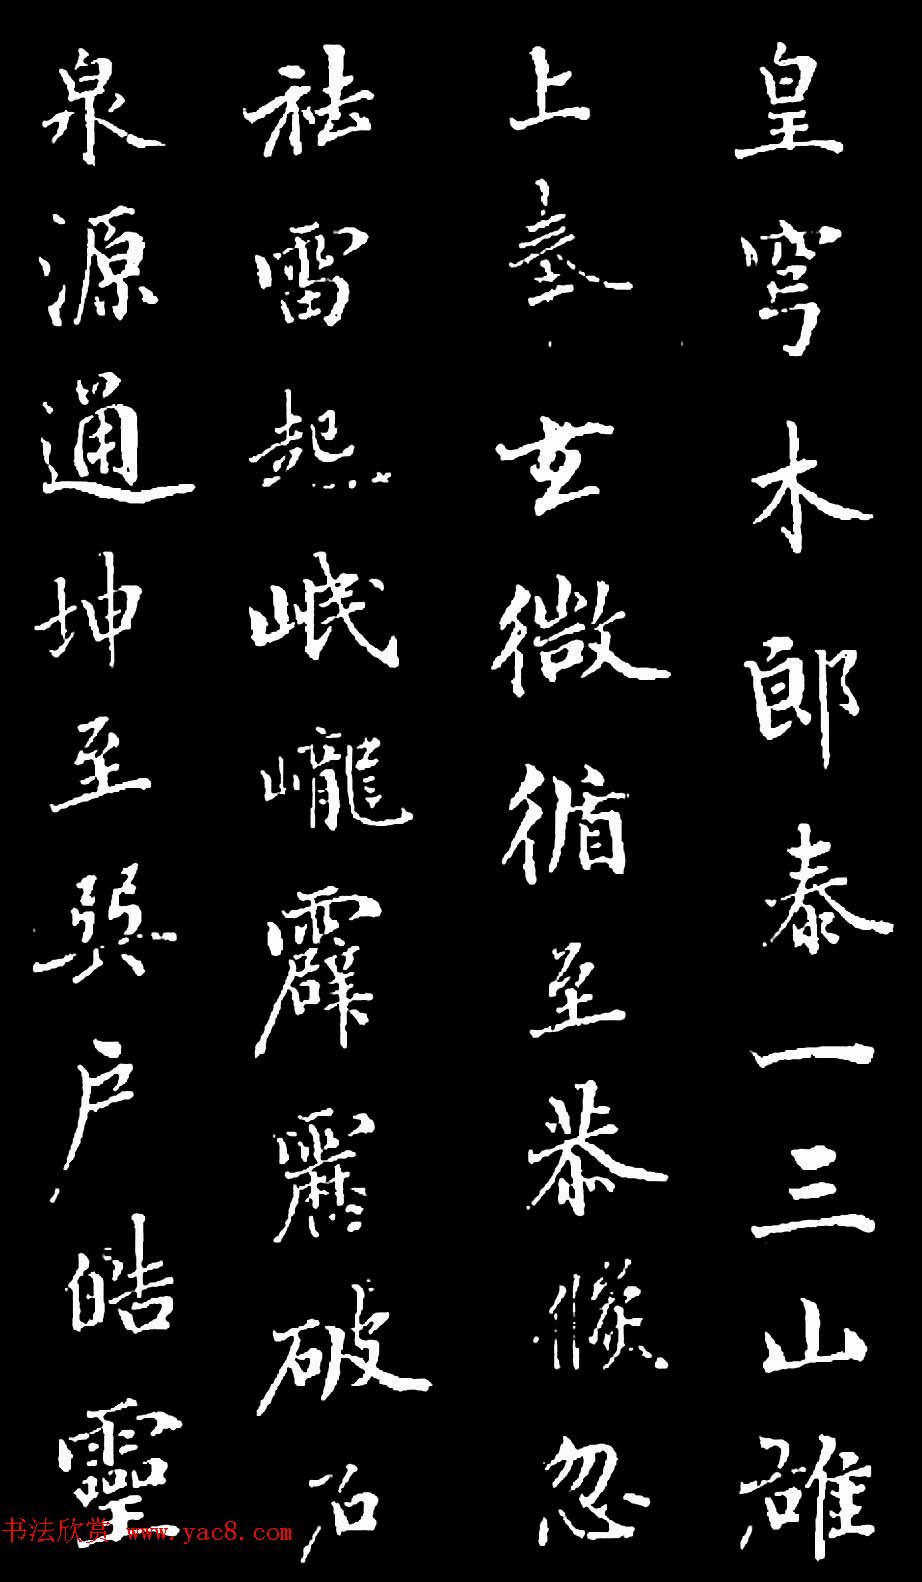 皇穹木郎泰一三山雄
上臺玄微循至恭倐忽
祛雷起岷巃霹靂破石
泉源通坤至巽户皓靈
书法欣赏 www.yac8.com